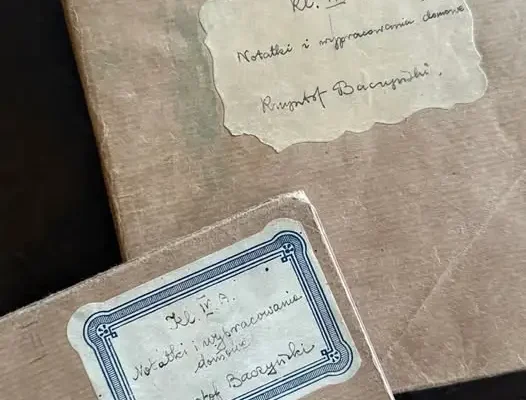 Kl. IV
Notatki i wypracowania domowe
Krzysztof Baczyński.
Kl. IV A.
Notatki i wypracowania
domowe
Baczyński